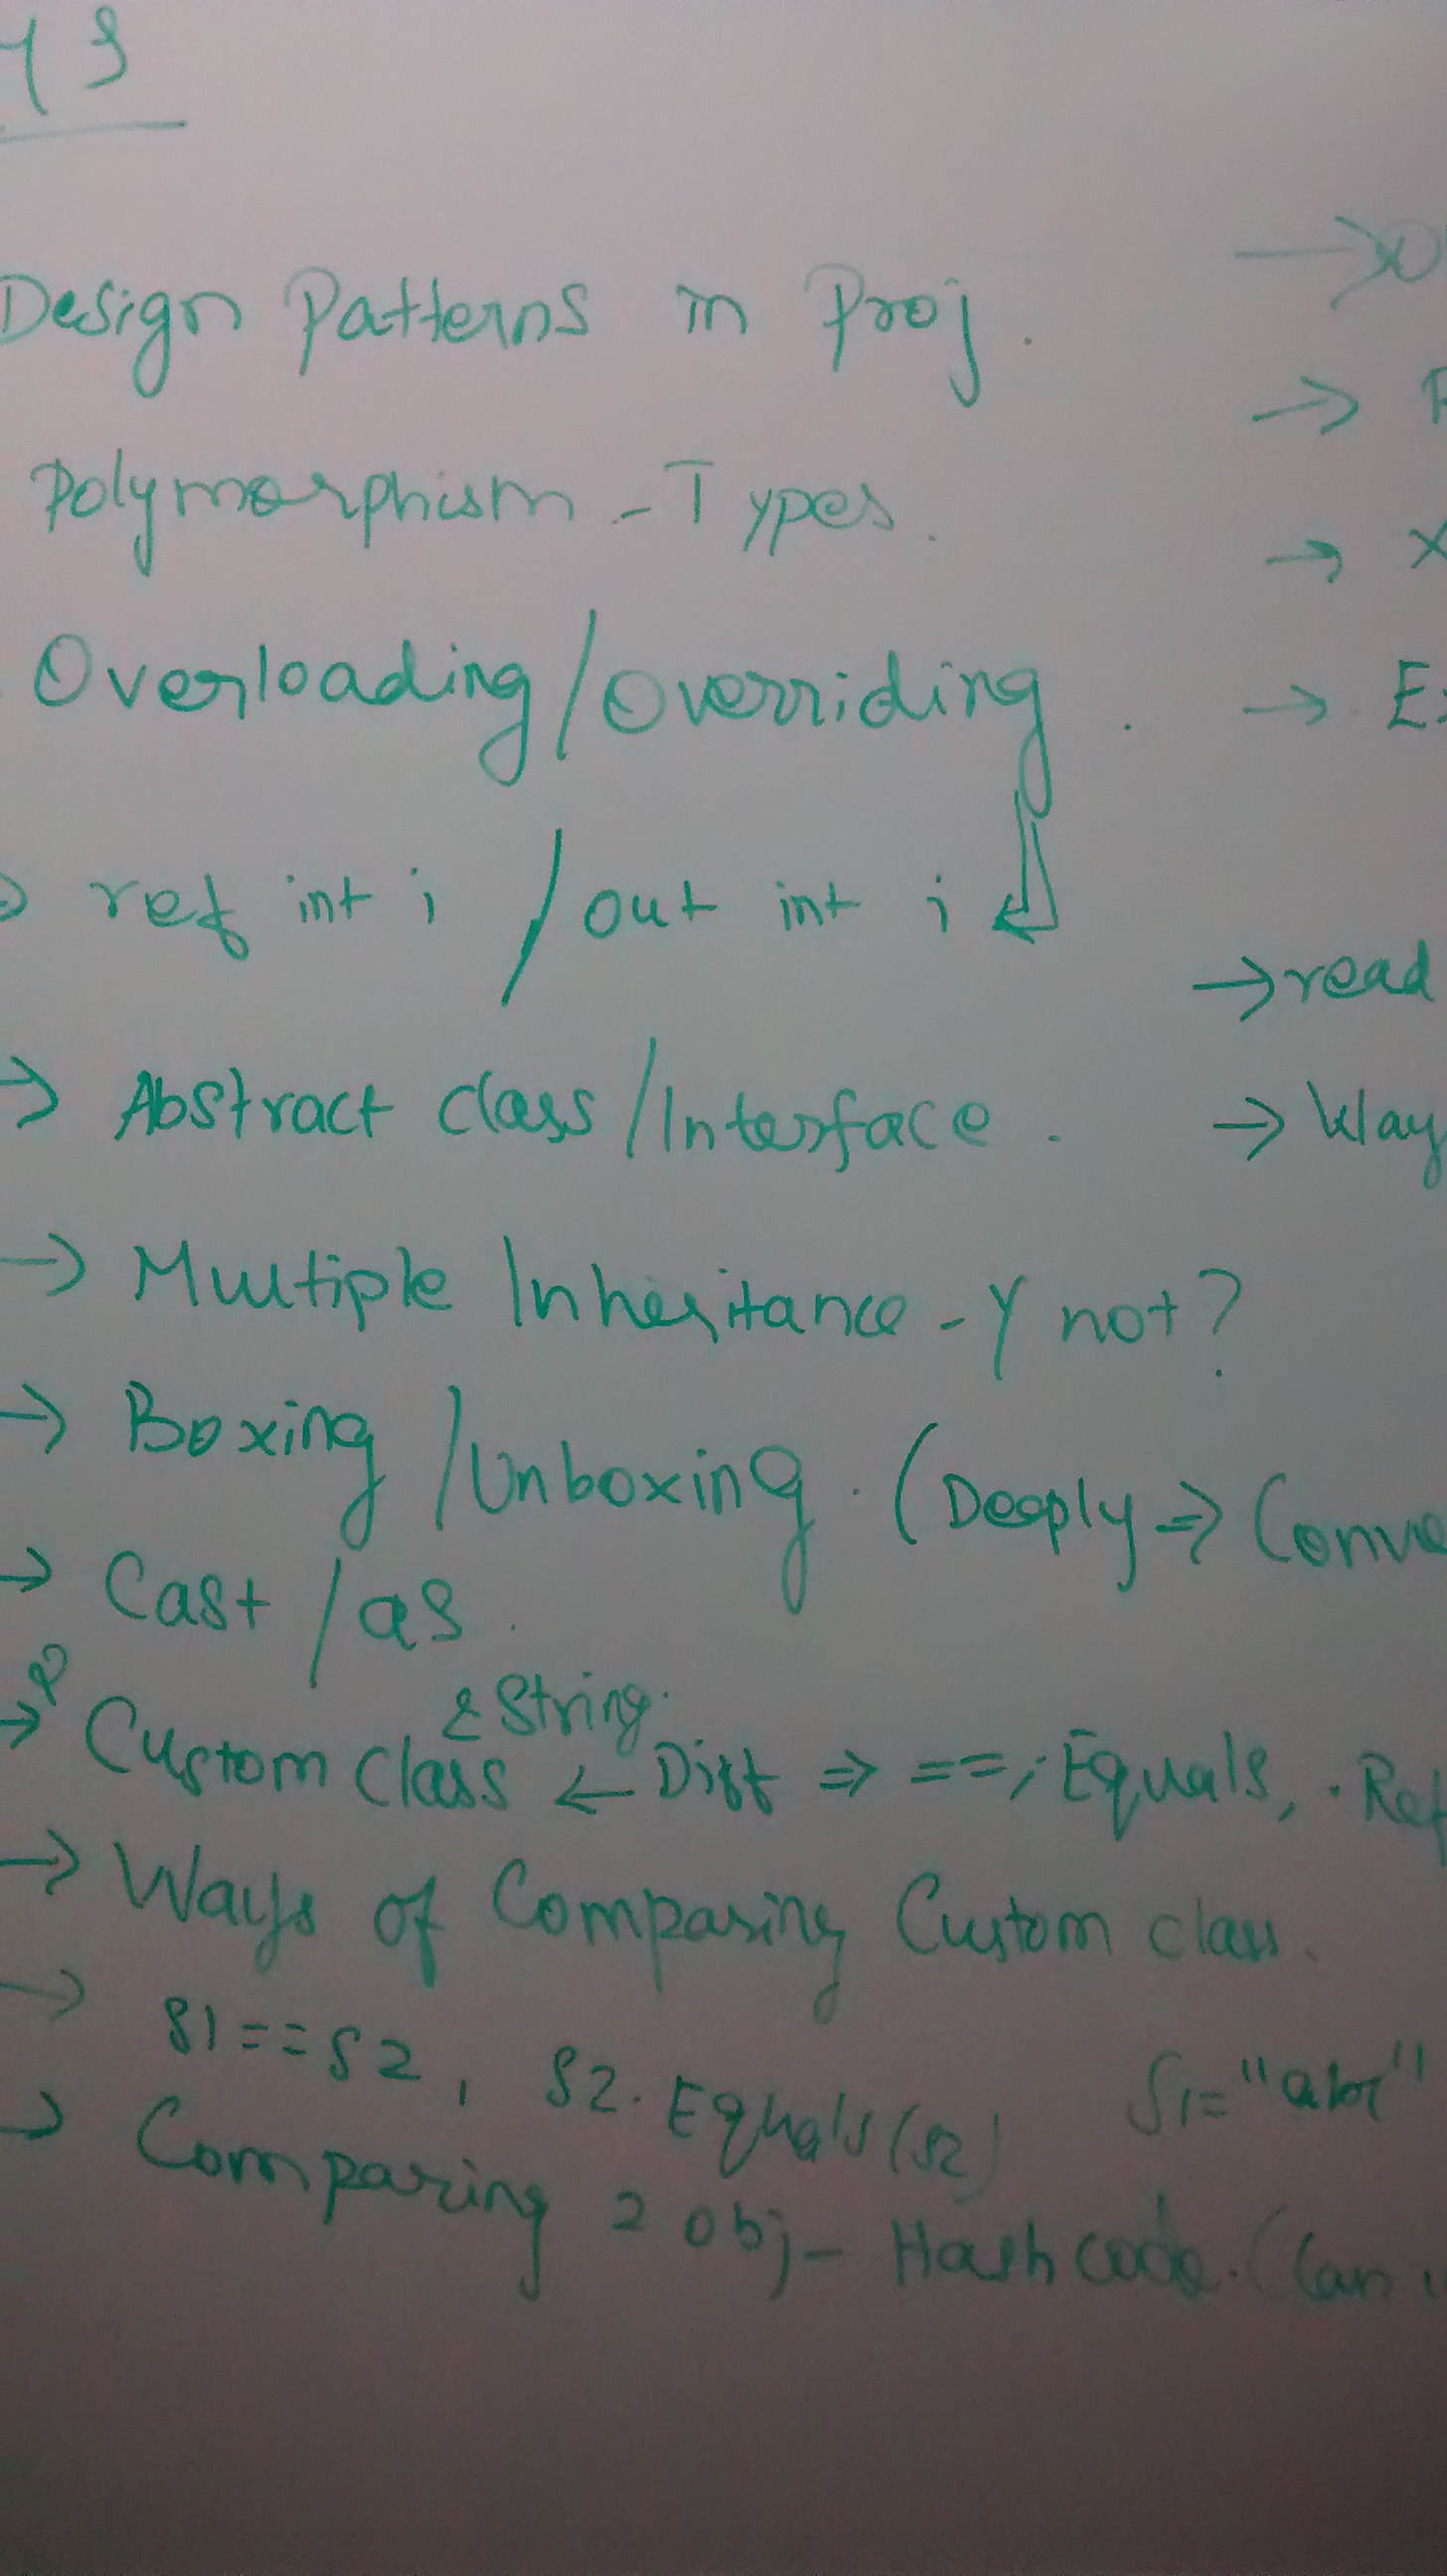 Design Patterns in Proj.
Polymorphism - Types.
Overloading / Overriding.
ref int i / out int i
→ read
→ Abstract class / Interface.
→ Way
→ Multiple Inheritance - Y not?
→ Boxing / Unboxing. (Deeply ⇒ Conve
→ Cast / as.
& String.
→ Custom Class ← Diff ⇒ ==, Equals, . Ref
→ Ways of Comparing Custom class.
→ S1 == S2, S2. Equals(S2) S1 = "abc"
→ Comparing 2 obj - Hash code. (Can